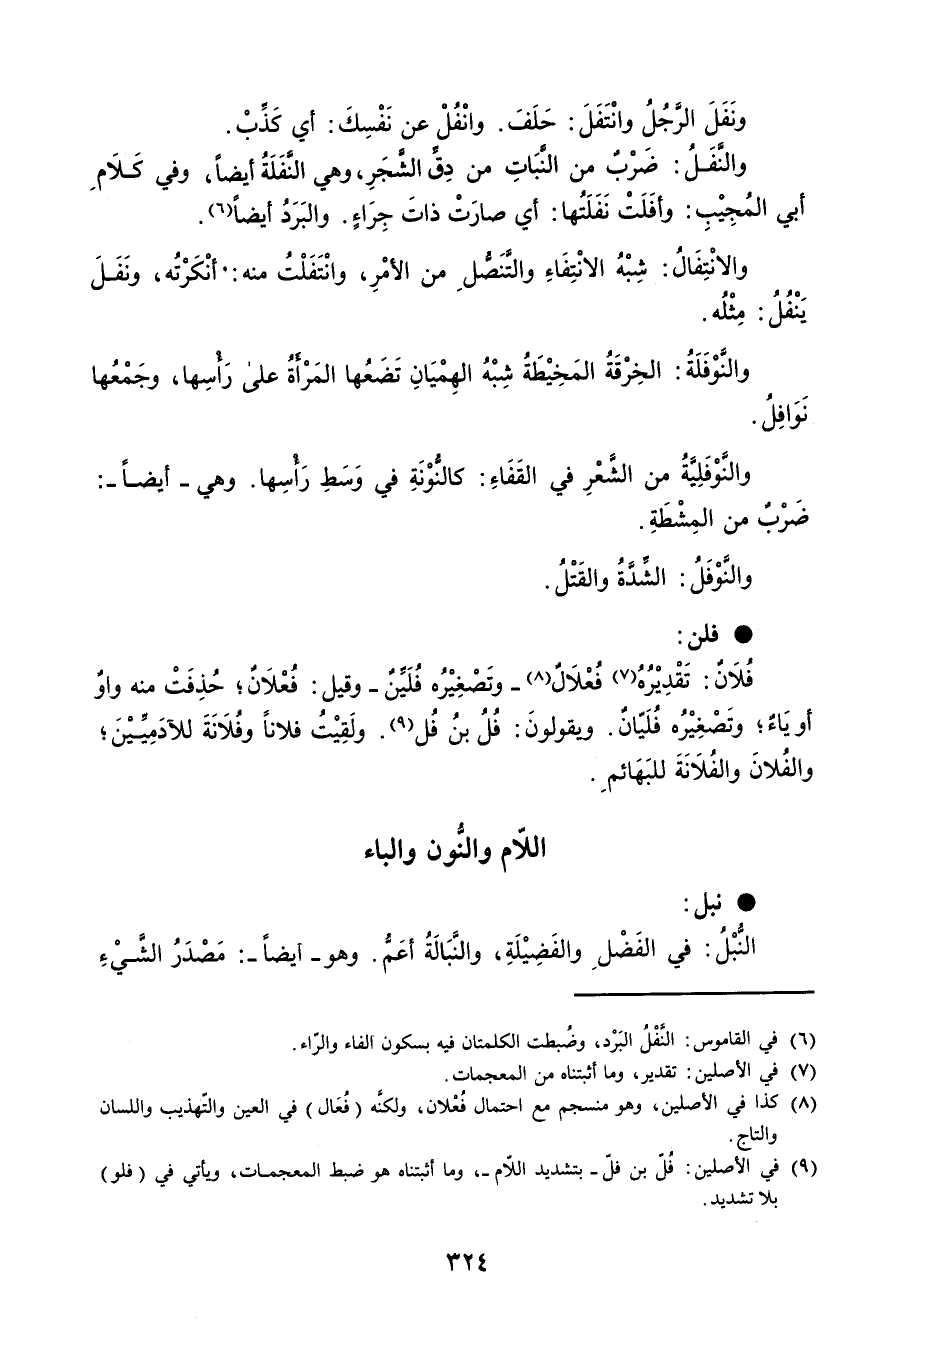 ونَفَلَ الرَّجُلُ وانْتَفَلَ: حَلَفَ. وانْفُلْ عن نَفْسِكَ: أي كَذِّبْ.
والنَّفَـلُ: ضَرْبٌ من النَّبَاتِ من دِقِّ الشَّجَرِ، وهي النَّفَلَةُ أيضاً، وفي كَـلَامِ
أبي المُجِيْبِ: وأفَلَتْ نَفَلَتُها: أي صارَتْ ذاتَ جِرَاءٍ. والبَرَدُ أيضاً(٦).
والانْتِفَالُ: شِبْهُ الانْتِفَاءِ والتَّنَصُّلِ من الأمْرِ، وانْتَفَلْتُ منه: أنْكَرْتُه، ونَفَـلَ
يَنْفُلُ: مِثْلُه.
والنَّوْفَلَةُ: الخِرْقَةُ المَخِيْطَةُ شِبْهُ الهِمْيَانِ تَضَعُها المَرْأَةُ على رَأْسِها، وجَمْعُها
نَوَافِلُ.
والنَّوْفَلِيَّةُ من الشَّعْرِ في القَفَاءِ: كالنُّوْنَةِ في وَسَطِ رَأْسِها. وهي ـ أيضـاً ـ:
ضَرْبٌ من المِشْطَةِ.
والنَّوْفَلُ: الشِّدَّةُ والقَتْلُ.
● فلن:
فُلَانٌ: تَقْدِيْرُهُ(٧) فُعْلَالٌ(٨) ـ وتَصْغِيْرُه فُلَيِّنٌ ـ وقيل: فُعْلَانٌ؛ حُذِفَتْ منه واوٌ
أو يَاءٌ؛ وتَصْغِيْرُه فُلَيَّانٌ. ويقولونَ: فُلُ بنُ فُل(٩). ولَقِيْتُ فلاناً وفُلَانَةَ للآدَمِيِّـيْنَ؛
والفُلانَ والفُلَانَةَ للبَهَائمِ.
اللّام والنُّون والباء
● نبل:
النُّبْلُ: في الفَضْلِ والفَضِيْلَةِ، والنَّبَالَةُ أعَمُّ. وهو ـ أيضاً ـ: مَصْدَرُ الشَّـيْءِ
(٦) في القاموس: النَّفْلُ البَرْد، وضُبطت الكلمتان فيه بسكون الفاء والرّاء.
(٧) في الأصلين: تقدير، وما أثبتناه من المعجمات.
(٨) كذا في الأصلين، وهو منسجم مع احتمال فُعْلان، ولكنَّه (فُعَال) في العين والتّهذيب واللسان
والتاج.
(٩) في الأصلين: فُلّ بن فلّ ـ بتشديد اللّام ـ، وما أثبتناه هو ضبط المعجمـات، ويأتي في (فلو)
بلا تشديد.
٣٢٤